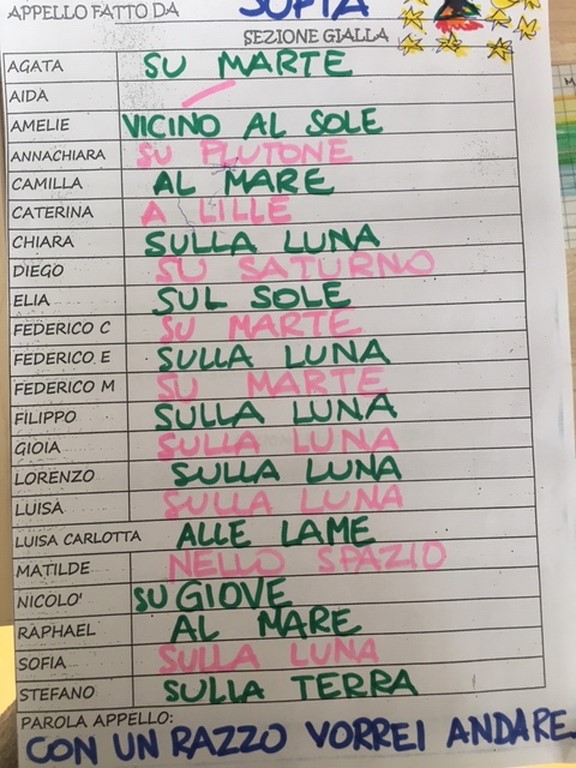 APPELLO FATTO DA SOFIA
SEZIONE GIALLA
AGATA SU MARTE
AIDA
AMELIE VICINO AL SOLE
ANNACHIARA SU PLUTONE
CAMILLA AL MARE
CATERINA A LILLE
CHIARA SULLA LUNA
DIEGO SU SATURNO
ELIA SUL SOLE
FEDERICO C SU MARTE
FEDERICO E SULLA LUNA
FEDERICO M SU MARTE
FILIPPO SULLA LUNA
GIOIA SULLA LUNA
LORENZO SULLA LUNA
LUISA SULLA LUNA
LUISA CARLOTTA ALLE LAME
MATILDE NELLO SPAZIO
NICOLO' SU GIOVE
RAPHAEL AL MARE
SOFIA SULLA LUNA
STEFANO SULLA TERRA
PAROLA APPELLO:
CON UN RAZZO VORREI ANDARE